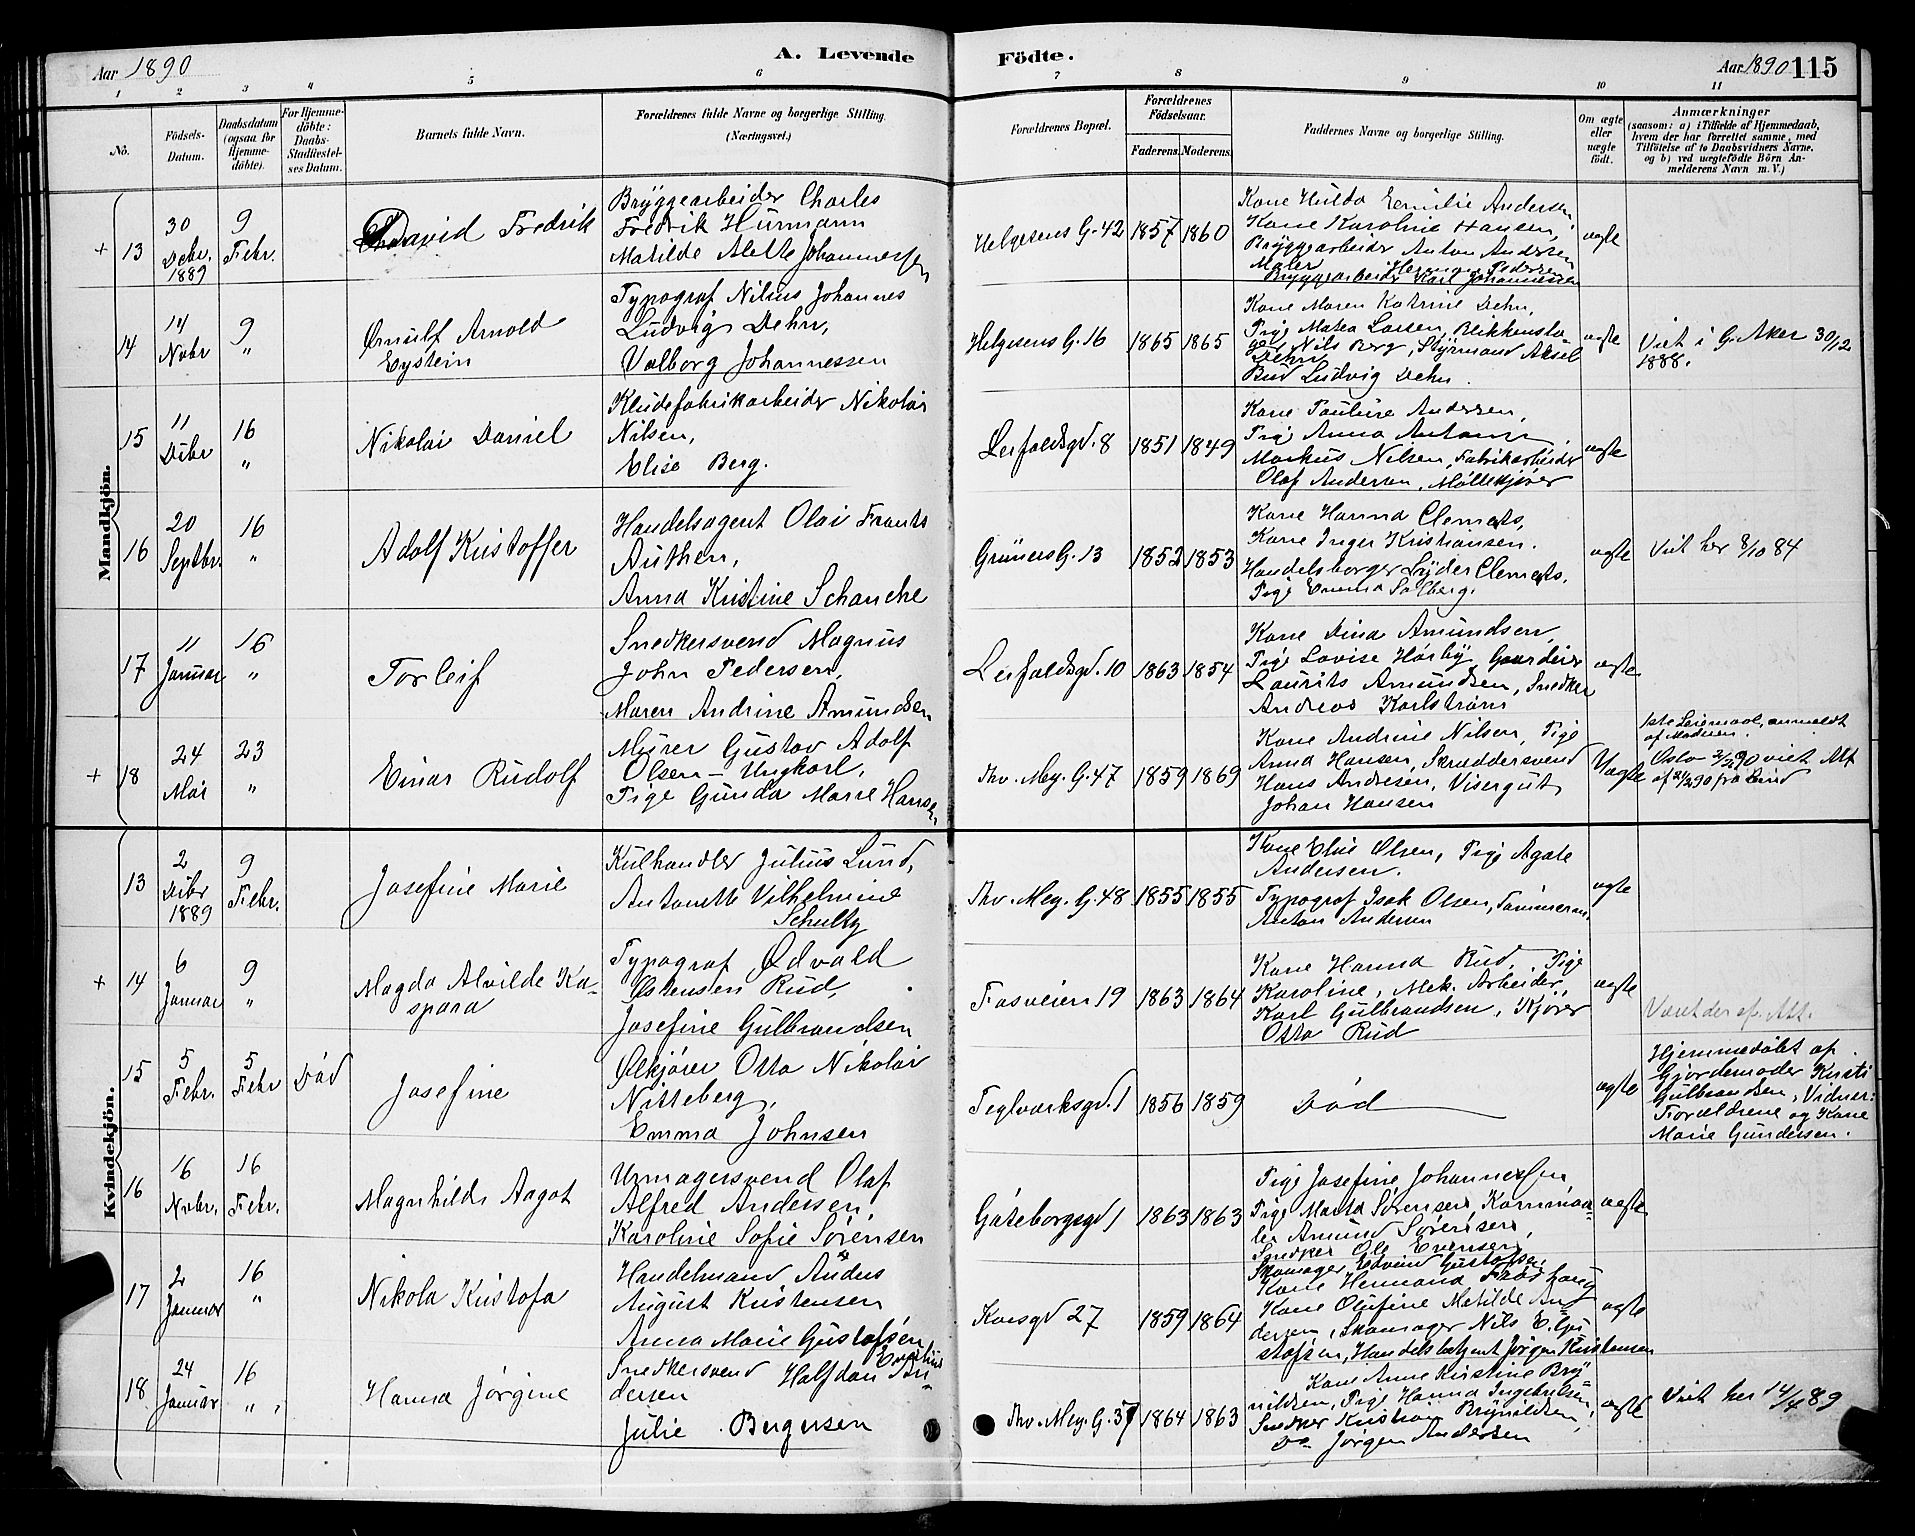 Aar 1890
A. Levende
Födte.
Aar 1890 115
1 2 3 4 5 6 7 8 9 10 11
No.
Födsels-Datum.
Daabsdatum (ogsaa for Hjemme-döbte).
For Hjemme-döbte: Daabs-Stadfæstel-ses Datum.
Barnets fulde Navn.
Forældrenes fulde Navne og borgerlige Stilling.
(Næringsvei.)
Forældrenes Bopæl.
Forældrenes Födselsaar.
Faderens. Moderens.
Faddernes Navne og borgerlige Stilling.
Om ægte eller uægte födt.
Anmærkninger
(saasom: a) i Tilfælde af Hjemmedaab,
hvem der har forrettet samme, med
Tilföielse af to Daabsvidners Navne.
og b) ved uægtefödte Börn An-
melderens Navn m. V.)
Mandkjön.
+ 13
30 Debr. 1889
9 Febr.
David Fredrik
Bryggearbeider Charles
Fredrik Hurmann
Matilde Alette Johannessen
Helgesens G. 42 1857 1860
Kone Hulda Emilie Andersen
Kone Karoline Hansen,
Bryggearbeider Anton Andersen
Maler Herman Pedersen
Bryggearbeider Karl Johannessen
ægte
14
14 Nobr
9 "
Ørnulf Arnold
Eystein
Typograf Nilius Johannes
Ludvig Dehn,
Valborg Johannessen
Helgesens G. 16 1865 1865
Kone Maren Katrine Dehn,
Pige Matea Larsen, Blikkensla-
ger Nils Berg, Styrmand Aksel
Dehn
Bud Ludvig Dehn.
ægte
Viet i G. Aker 30/12
1888.
15
11 Debr
16 "
Nikolai Daniel
Kludefabrikarbeider Nikolai
Nilsen,
Elise Berg.
Leifaldsgd. 8 1851 1849
Kone Pauline Andersen,
Pige Anna
Markus Nilsen, Fabrikarbeider
Olaf Andersen, Møllekjører
ægte
16
20 Septbr.
16 "
Adolf Kristoffer
Handelsagent Olai Frants
Authen,
Anna Kristine Schanche
Grüners G. 13 1852 1853
Kone Hanna Clemets,
Kone Inger Kristiansen.
Handelsborger Lyder Clemets,
Pige Emma Solberg.
ægte
Viet her 8/10 84
17
11 Januar
16 "
Torleif
Snedkersvend Magnus
John Pedersen,
Maren Andrine Amundsen
Leifaldsgd. 10 1863 1854
Kone Dina Amundsen,
Pige Lovise Hørby, Gaardeier
Laurits Amundsen, Snedker
Andreas Karlstrøm
ægte
+ 18
24 Mai
23 "
Einar Rudolf
Murer Gustav Adolf
Olsen – Ungkarl,
Pige Gunda Marie Hansen
Thv. Mey. G. 47 1859 1869
Kone Andrine Nilsen, Pige
Anna Hansen, Skræddersvend
Hans Andresen, Visergut
Johan Hansen
Uægte
1ste Leiemaal, anmeldt
af Moderen.
Oslo 90 viet Att
90 fra
Kvindekjön.
13
2 Debr 1889
9 Febr.
Josefine Marie
Kulhandler Julius Lund,
Antonette Vilhelmine
Schultz
Thv. Mey. G. 48 1855 1855
Kone Elise Olsen, Pige Agate
Andersen.
Typograf Isak Olsen, Tømmerm.
Anton Andersen
ægte
+ 14
6 Januar
9 "
Magda Alvilde Ka-
spara
Typograf Ødvald
Østensen Rud,
Josefine Gulbrandsen
Fosveien 19 1863 1864
Kone Hanna Rud, Pige
Karoline, Mek. Arbeider,
Karl Gulbrandsen, Kjører
Otto Rud
ægte
15
5 Febr.
5 Febr
Død
Josefine
Ølkjører Otto Nikolai
Nitteberg,
Emma Johnsen
Teglværksgd. 1 1856 1859
Død
ægte
Hjemmedøbt af
Gjordemoder Kirsti
Gulbrandsen, Vidner:
Forældrene og Kone
Marie Gundersen.
16
16 Nobr.
16 Febr.
Magnhilds Aagot
Urmagersvend Olaf
Alfred Andersen,
Karoline Sofie Sørensen
Gøteborgsgd 1 1863 1863
Pige Josefine Johannessen
Pige Marta Sørensen, Kornmaa-
ler Amund Sørensen,
Snedker Ole Evensen
Skomager Edvind Gustafsen
ægte
17
2 Januar
16 "
Nikola Kristofa
Handelsmand Anders
August Kristensen
Anna Marie Gustafsen
Korsgd 27 1859 1864
Kone Hermana Frøshaug
Kone Olufine Matilde An-
dersen, Skomager Nils E. Gu-
stafsen, Handelsbetjent Jørgen Kristensen
ægte
18
24 Januar
16 "
Hanna Jørgine
Snedkersvend Halfdan An-
dersen
Julie Bergersen
Thv. Mey. G. 37 1864 1863
Kone Anne Kirstine Bry-
nildsen, Pige Hanna Ingebretsen,
Snedker Kristian Brynildsen,
Do Jørgen Andersen
ægte
Viet her 14/4 89